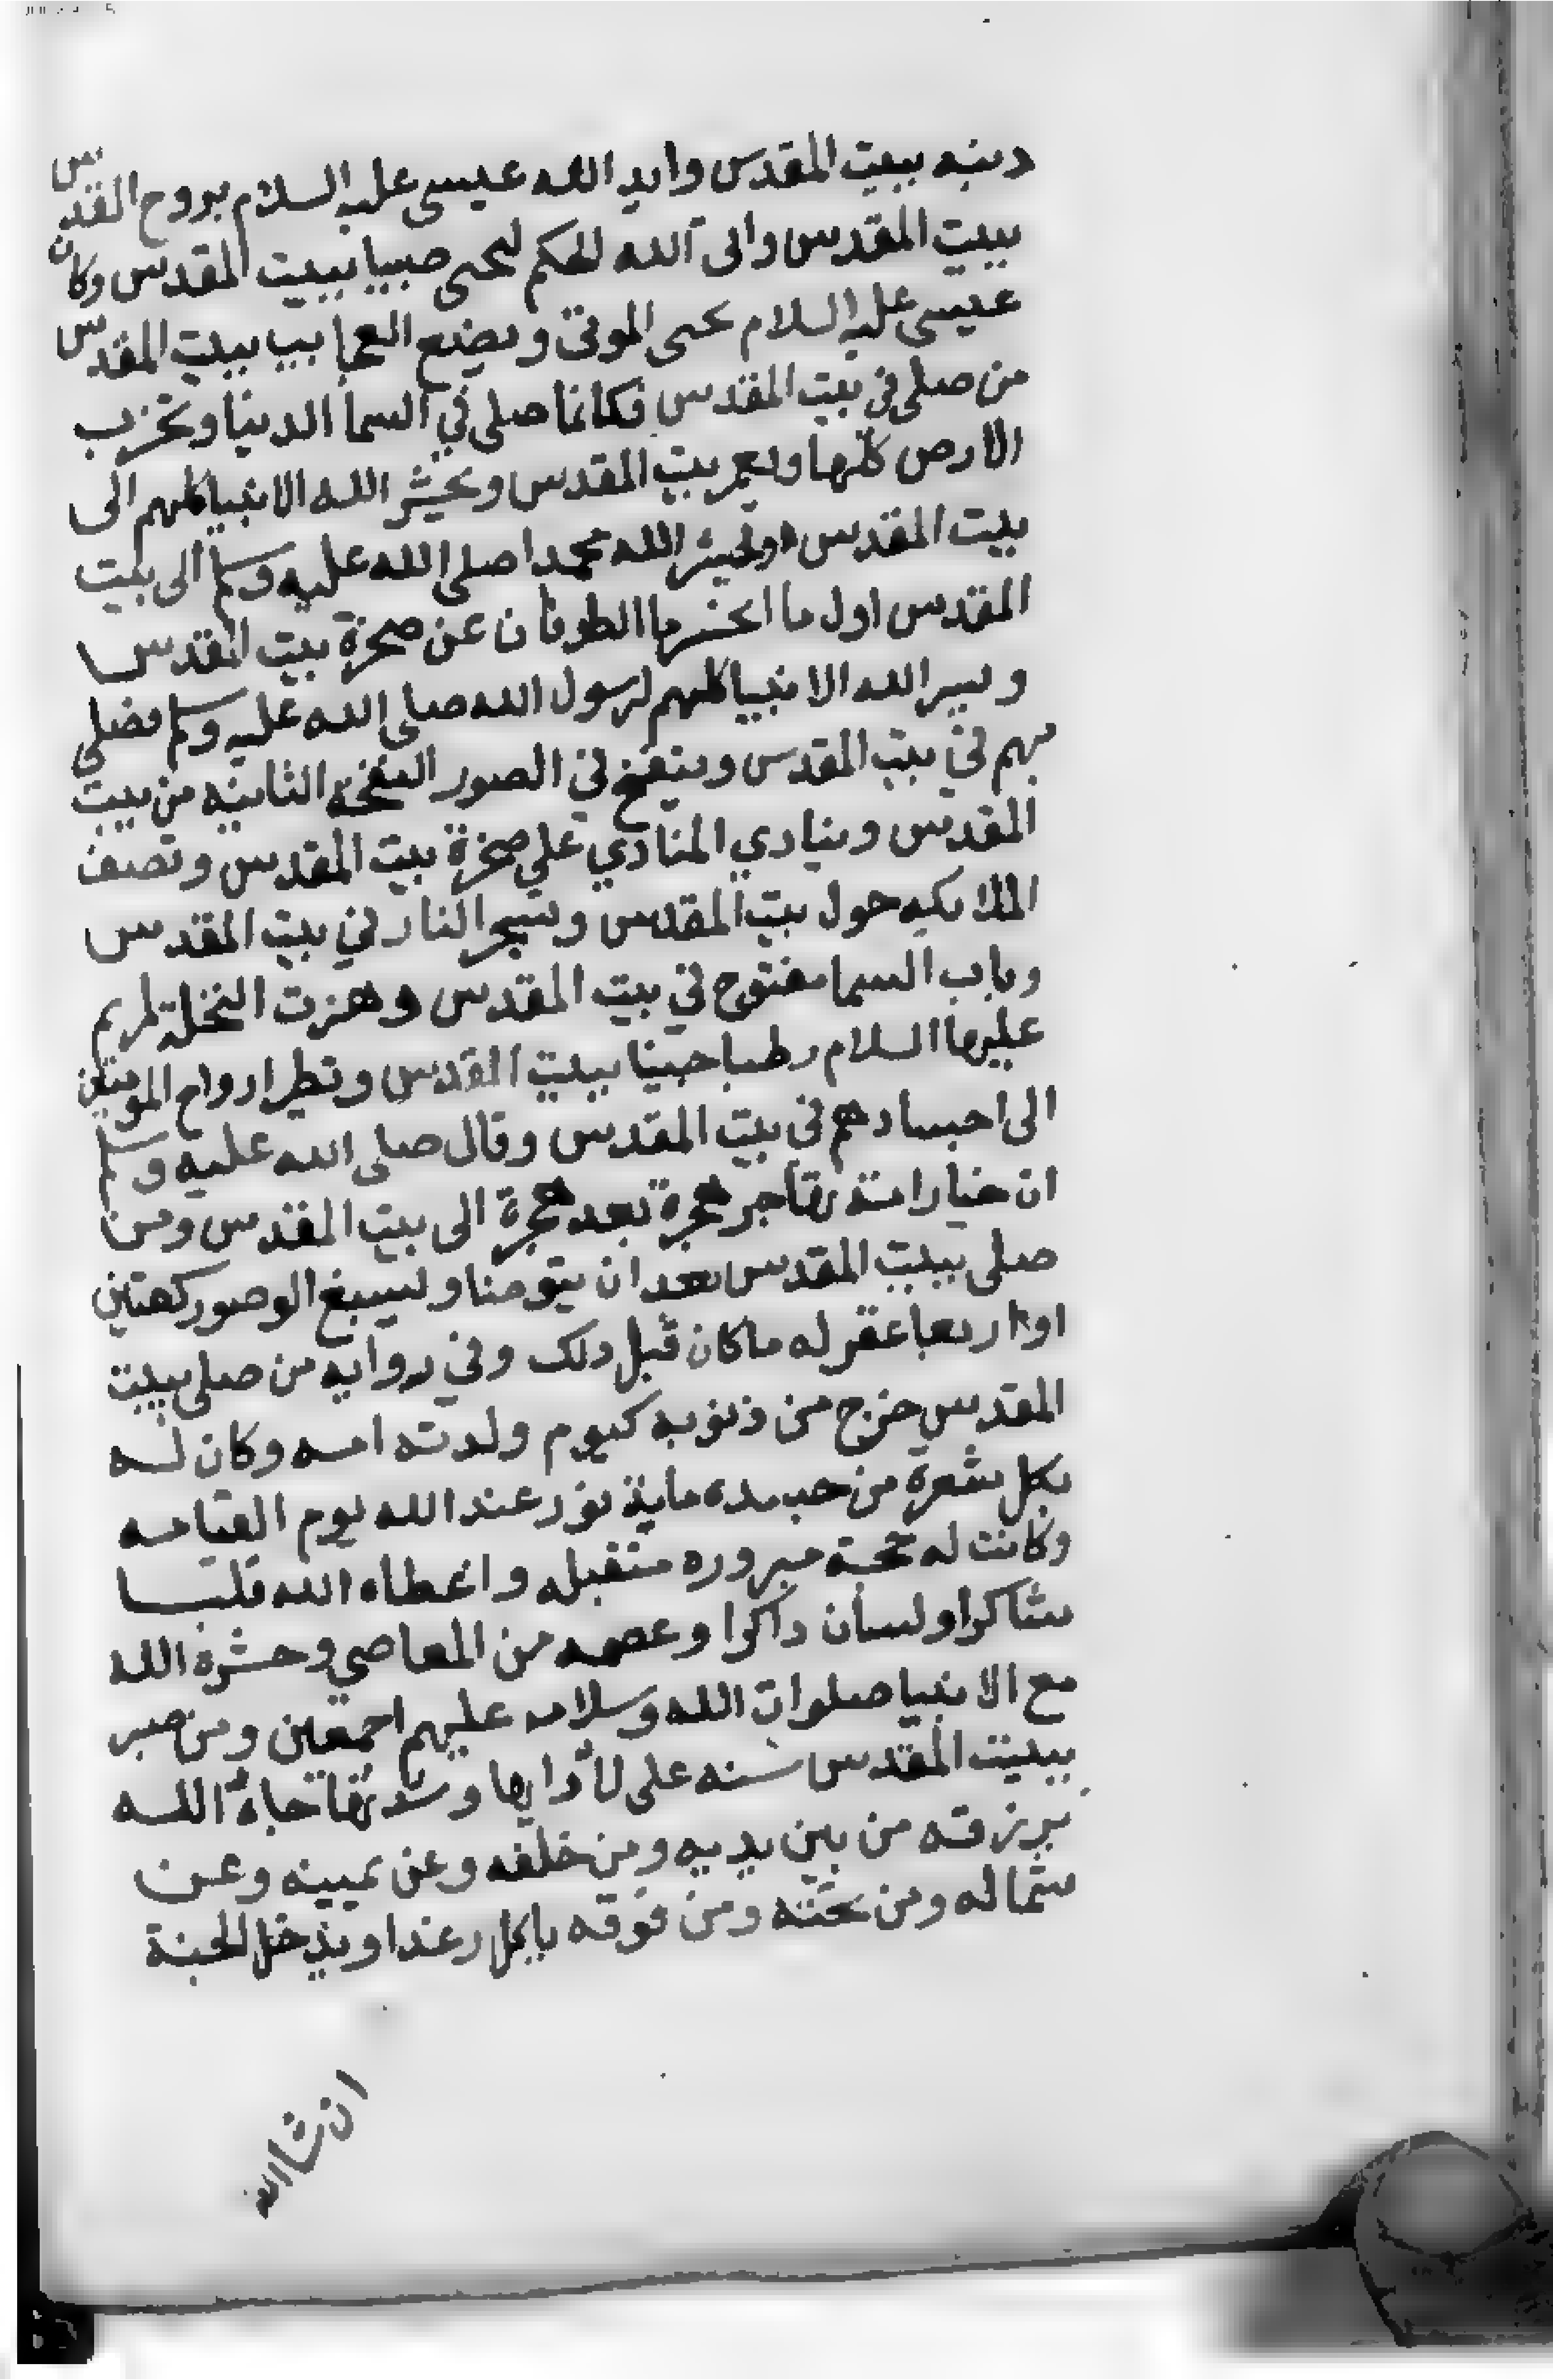 دينه ببيت المقدس وايد الله عيسى عليه السلام بروح القدس
ببيت المقدس واتى الله الحكم ليحيى صبيا ببيت المقدس وكان
عيسى عليه السلام يحيى الموتى ويضع العجايب ببيت المقدس
من صلى في بيت المقدس فكانما صلى في السما الدنيا وتخرب
الارض كلها ويعمر بيت المقدس ويحشر الله الانبيا كلهم الى
بيت المقدس ويحشر الله محمدا صلى الله عليه وسلم الى بيت
المقدس اول ما انحسر ما الطوفان عن صخرة بيت المقدس
ويسير الله الانبيا كلهم لرسول الله صلى الله عليه وسلم فصلى
بهم في بيت المقدس وينفخ في الصور النفخة الثانيه من بيت
المقدس وينادي المنادي على صخرة بيت المقدس وتصف
الملايكه حول بيت المقدس النار في بيت المقدس
وباب السما مفتوح في بيت المقدس وهزت النخلة لمريم
عليها السلام رطبا جنيا ببيت المقدس وتطير ارواح المومنين
الى اجسادهم في بيت المقدس وقال صلى الله عليه وسلم
ان خيار امتي تهاجر هجرة بعد هجرة الى بيت المقدس ومن
صلى ببيت المقدس بعد ان يتوضا ويسبغ الوضو ركعتين
او اربعا غفر له ما كان قبل ذلك وفي روايه من صلى ببيت
المقدس خرج من ذنوبه كيوم ولدته امه وكان له
بكل شعرة من جسده ماية نور عند الله يوم القيامه
وكانت له حجة مبروره متقبله واعطاه الله قلبا
شاكرا ولسان ذاكرا وعصمه من المعاصي وحشره الله
مع الانبيا صلوات الله وسلامه عليهم اجمعين ومن صبر
ببيت المقدس سنه على لأوايها وشدتها جاه الله
برزقه من بين يديه ومن خلفه وعن يمينه وعن
شماله ومن تحته ومن فوقه ياكل رغدا ويدخل الجنة
ان شا الله